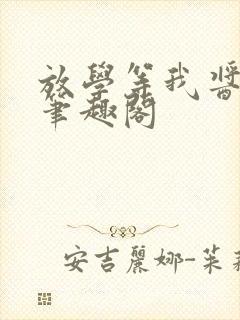 放學等我醬
筆趣閣
安吉麗娜-茱莉